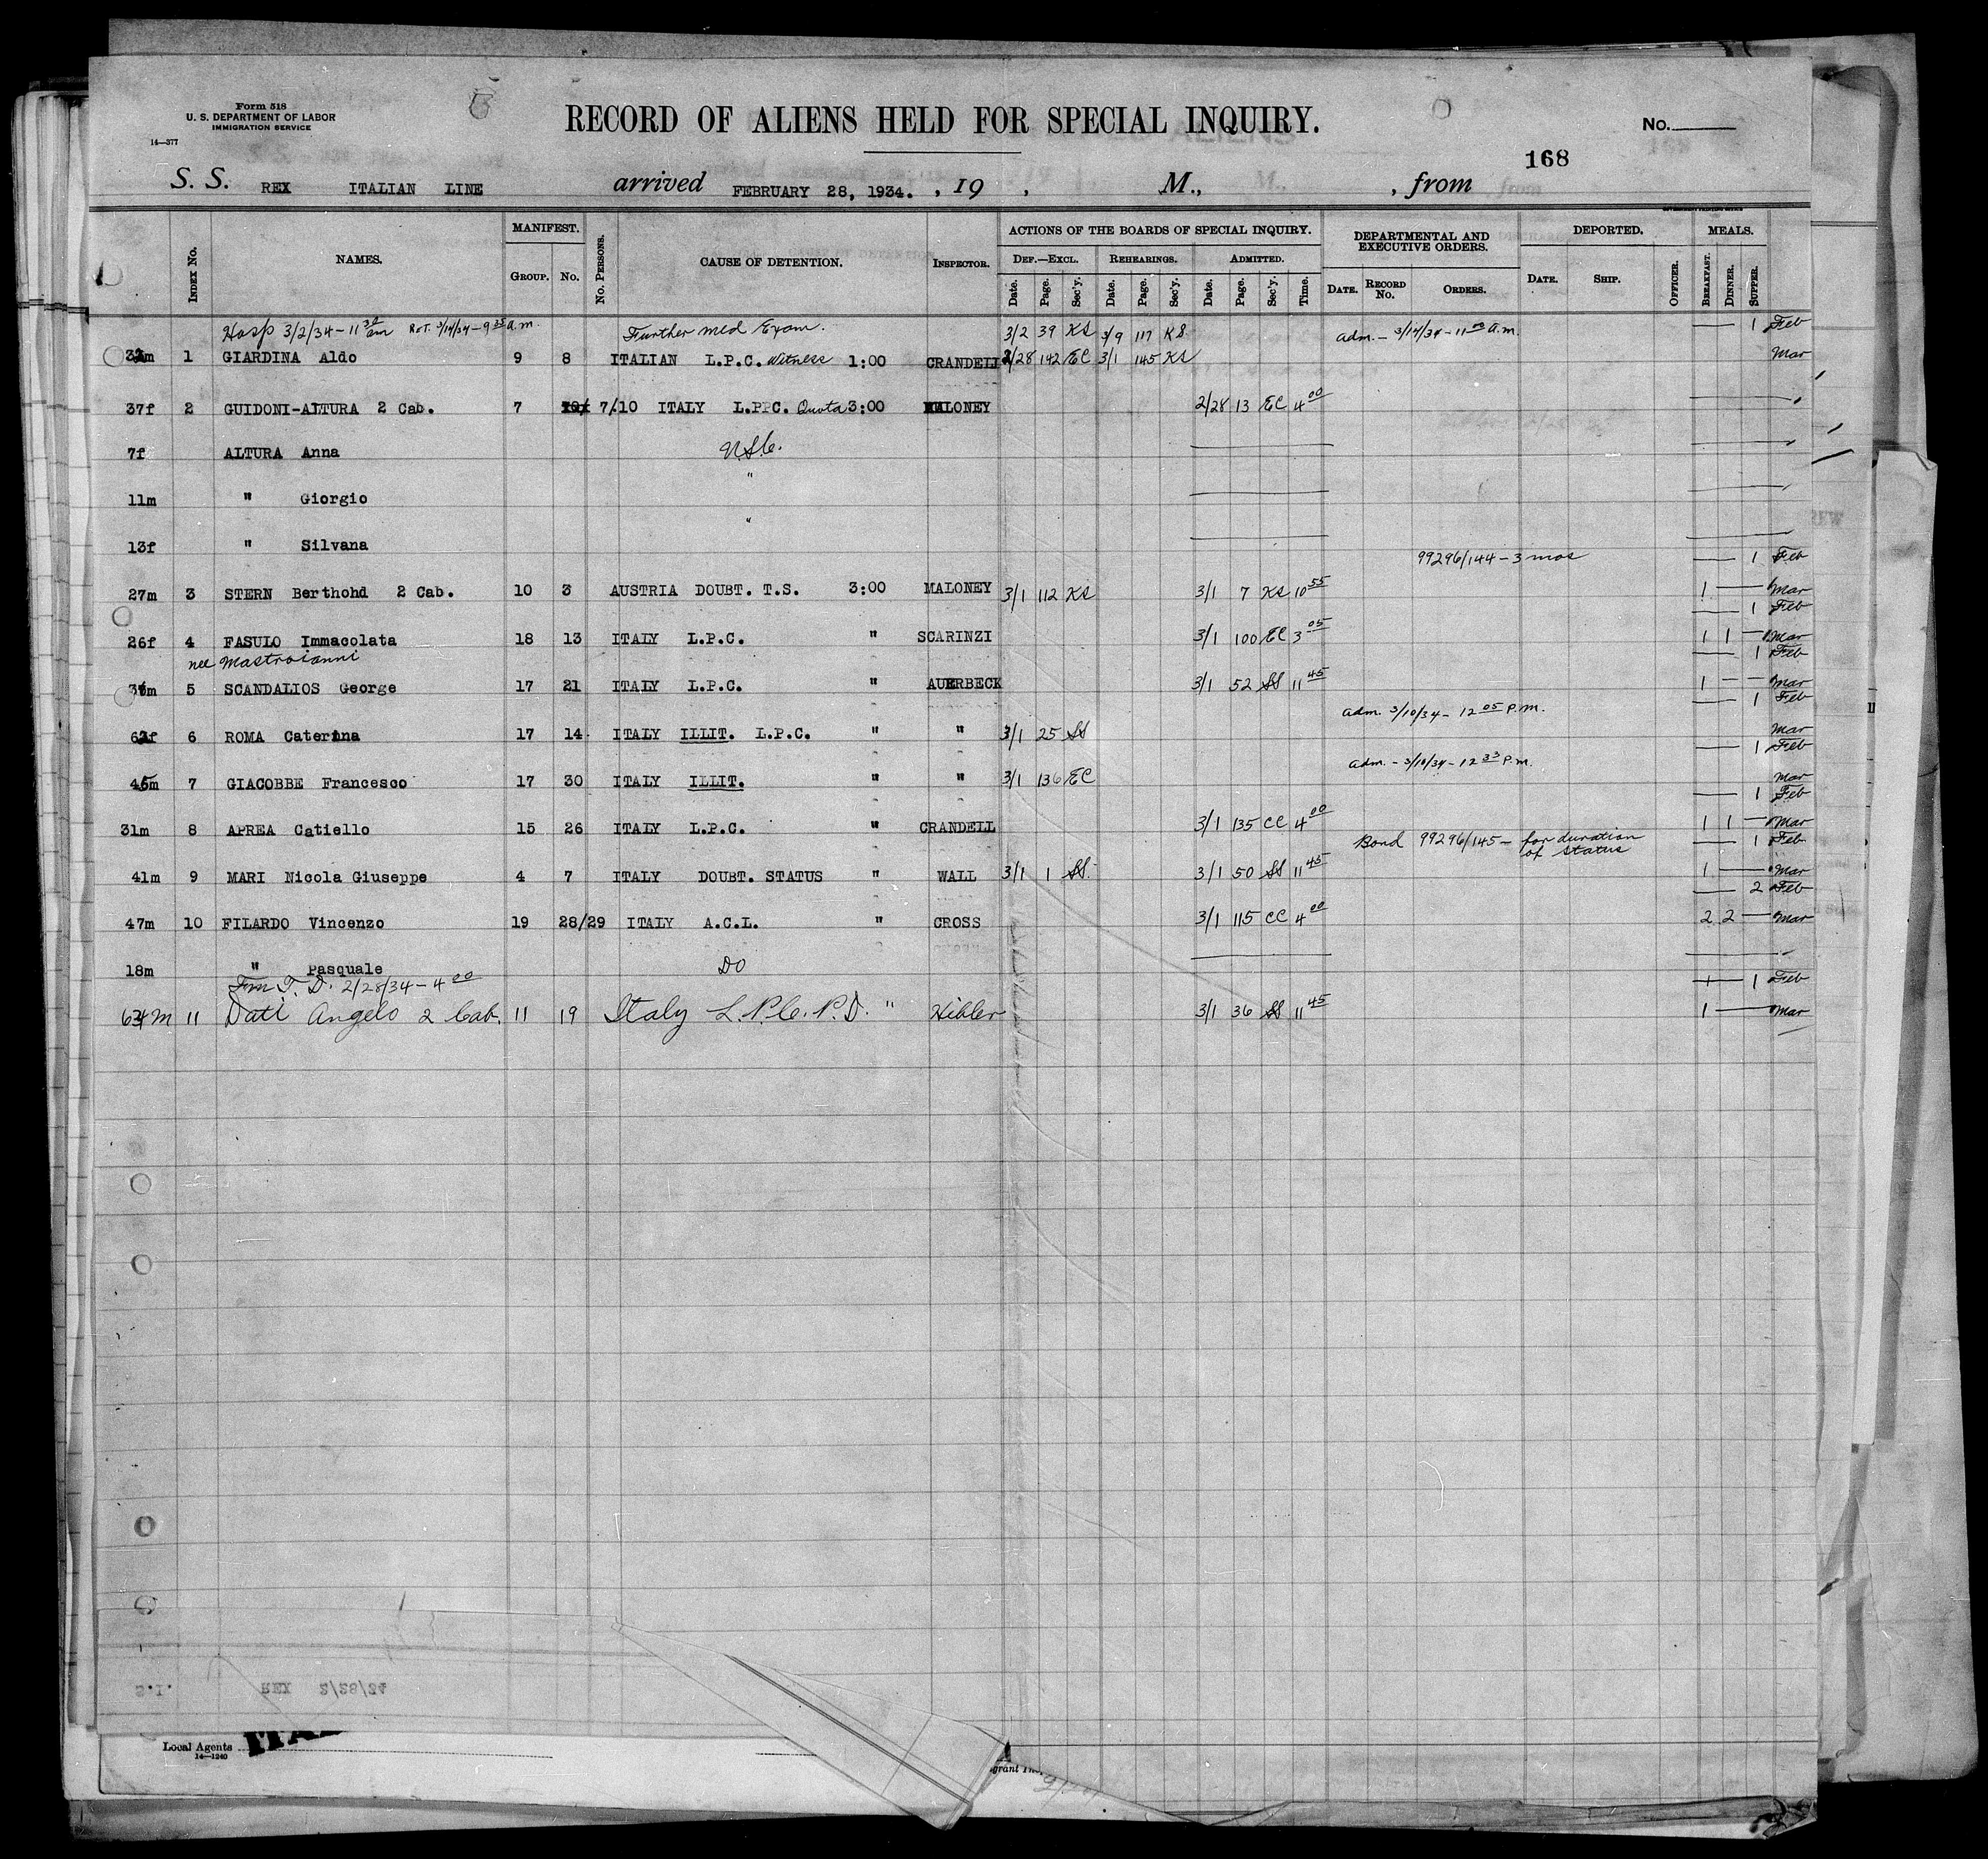 Form 518
U. S. DEPARTMENT OF LABOR
IMMIGRATION SERVICE
14—377
RECORD OF ALIENS HELD FOR SPECIAL INQUIRY.
No.
168
S. S. REX ITALIAN LINE arrived FEBRUARY 28, 1934. , 19 , M., , from
INDEX No. NAMES. MANIFEST. GROUP. No. No. PERSONS. CAUSE OF DETENTION. INSPECTOR. ACTIONS OF THE BOARDS OF SPECIAL INQUIRY. DEPARTMENTAL AND EXECUTIVE ORDERS. DEPORTED. MEALS.
DEF.—EXCL. REHEARINGS. ADMITTED.
Date. Page. Sec'y. Date. Page. Sec'y. Date. Page. Sec'y. Time. DATE. RECORD No. ORDERS. DATE. SHIP. OFFICER. BREAKFAST. DINNER. SUPPER.
Hosp 3/2/34 - 11 30 am Ret. 3/14/34 - 9 35 a.m. Further med Exam. 3/2 39 KS 3/9 117 KS Adm. - 3/14/34 - 11 00 a.m. 1 Feb
1 GIARDINA Aldo 9 8 ITALIAN L.P.C. Witness 1:00 CRANDELL 2/28 142 EC 3/1 145 KS Mar
37f 2 GUIDONI-ALTURA 2 Cab. 7 7/10 ITALY L.P.C. Quota 3:00 MALONEY 2/28 13 EC 4 00
7f ALTURA Anna U.S.C.
11m " Giorgio "
13f " Silvana "
99296/144 - 3 mos 1 Feb
27m 3 STERN Berthohd 2 Cab. 10 3 AUSTRIA DOUBT. T.S. 3:00 MALONEY 3/1 112 KS 3/1 7 KS 10 55 1 Mar
1 Feb
26f 4 FASULO Immacolata 18 13 ITALY L.P.C. " SCARINZI 3/1 100 EC 3 05 1 1 Mar
nee Mastroianni 1 Feb
5 SCANDALIOS George 17 21 ITALY L.P.C. " AUERBECK 3/1 52 SS 11 45 1 Mar
Adm. 3/10/34 - 12 05 P.M. 1 Feb
6 ROMA Caterina 17 14 ITALY ILLIT. L.P.C. " " 3/1 25 SS Mar
Adm. - 3/10/34 - 12 33 P.M. 1 Feb
7 GIACOBBE Francesco 17 30 ITALY ILLIT. " " 3/1 136 EC Mar
1 Feb
31m 8 APREA Catiello 15 26 ITALY L.P.C. " CRANDELL 3/1 135 CC 4 00 1 1 Mar
Bond 99296/145 - for duration of Status 1 Feb
41m 9 MARI Nicola Giuseppe 4 7 ITALY DOUBT. STATUS " WALL 3/1 1 SS. 3/1 50 SS 11 45 1 Mar
2 Feb
47m 10 FILARDO Vincenzo 19 28/29 ITALY A.C.L. " CROSS 3/1 115 CC 4 00 2 2 Mar
18m " Pasquale DO
Frm T. D. 2/28/34 - 4 00 1 Feb
11 Dati Angelo 2 Cab. 11 19 Italy L.P.C. P.D. " Hibler 3/1 36 SS 11 45 1 Mar
S.I. REX 2/28/34
Local Agents
14—1240